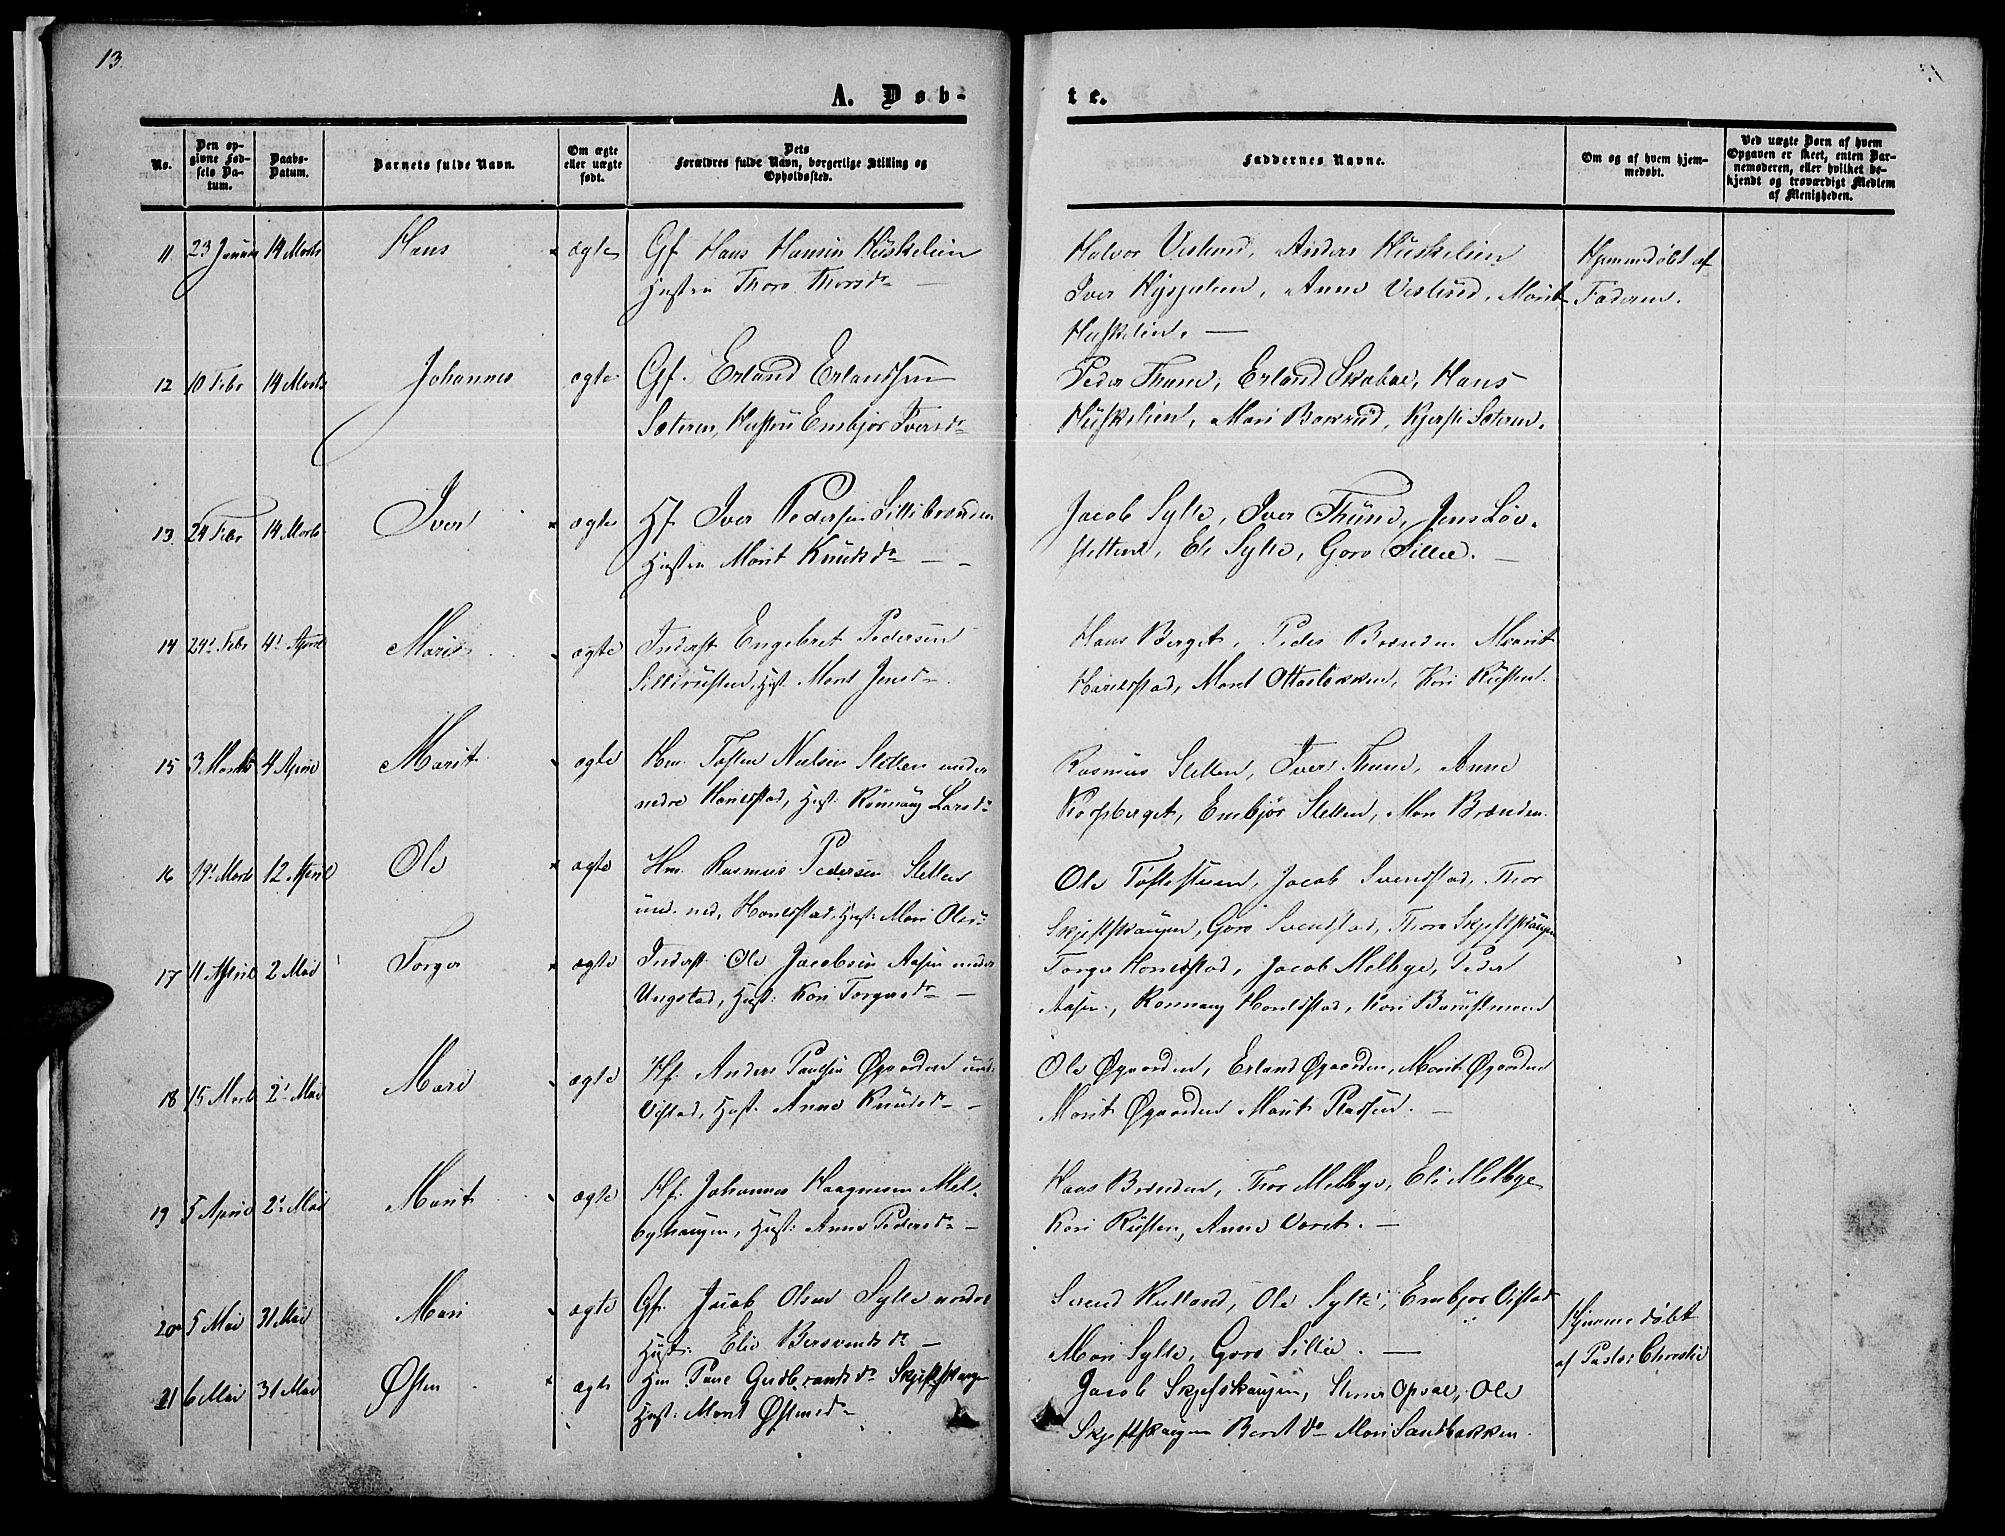 13
A. Døb-
te.
No.
Den opgivne Fødsels Datum.
Daabs-Datum.
Barnets fulde Navn.
Om ægte eller uægte født.
Dets Forældres fulde Navn, borgerlige Stilling og Opholdssted.
Faddernes Navne.
Om og af hvem hjemmedøbt.
Ved uægte Børn af hvem Opgaven er skeet, enten Barnemoderen, eller hvilket bekjendt og troværdigt Medlem af Menigheden.
11 23 Januar 14 Marts Hans ægte Gf. Hans Hansen Huskelien
Hustru Thora Thorsdr
Halvor Veslund, Anders Huskelien
Iver Anne Veslund, Marit
Huskelien.
Hjemmedøbt af
Faderen.
12 10 Febr 14 Marts Johannes ægte Gf. Erland Erlandsen
Sæteren, Hustru Embjør Iversdr
Peder Thune, Erland Skabae, Hans
Huskelien, Mari Kjersti Sæteren.
13 24 Febr 14 Marts Iver ægte Hf. Iver Pedersen Sillibrænden
Hustru Marit Knudsdr
Jacob Sylte, Iver Thune, Jens Løv-
stetten, Eli Sylte, Goro Sillie.
14 24. Febr 4. April Marit ægte Inderst Engebret Pedersen
Sillirusten, Hust. Marit Jensdr
Hans Berget, Peder Brænden Marit
Harildstad, Marit Ottosbakken, Kari Rusten.
15 3 Marts 4 April Marit ægte Hm. Tosten Nielsen Sletten under
nedre Harildstad, Hust: Rønnaug Larsdr
Rasmus Sletten, Iver Thune, Anne
Korpberget, Embjør Sletten, Mari Brænden.
16 19. Marts 12 April Ole ægte Hm. Rasmus Pedersen Sletten
und. ned. Harildstad, Hust: Mari Olsdr
Ole Toftesteen, Jacob Svendstad, Thor
Skjefthaugen, Goro Svendstad, Thora Skjefthaugen
17 11 April 2 Mai Torger ægte Inderst Ole Jacobsen Aasen under
Ungstad, Hust: Kari Torgersdr
Torger Harildstad, Jacob Melbye, Peder
Aasen, Rønnaug Harildstad, Kari
18 15 Marts 2. Mai Mari ægte Hf. Anders Paulsen Øgaarden und.
Vistad, Hust. Anne Knudsdr
Ole Øgaarden, Erland Øgaarden, Marit Øgaarden
Marit Øgaarden Marit Plassen.
19 5 April 2. Mai Marit ægte Hf. Johannes Haagensen Mel-
byhaugen, Hust: Anne Pedersdr
Hans Brænden, Thor Melbye, Eli Melbye
Kari Rusten, Anne Voret.
20 5 Mai 31 Mai Mari ægte Gf. Jacob Olsen Sylte nordre
Hust: Elie Bersvendsdr
Svend Kulland, Ole Sylte, Embjør Vistad
Mari Sylte, Goro Sillie.
Hjemmedøbt
af Pastor Christie
21 6 Mai 31 Mai Østen ægte Hm Paul Gudbrandsdr Skjefthaugen
Hust: Marit Østensdr
Jacob Skjefthaugen, Stener Opsal, Ole
Skjefthaugen Berit do Mari Sandbakken.